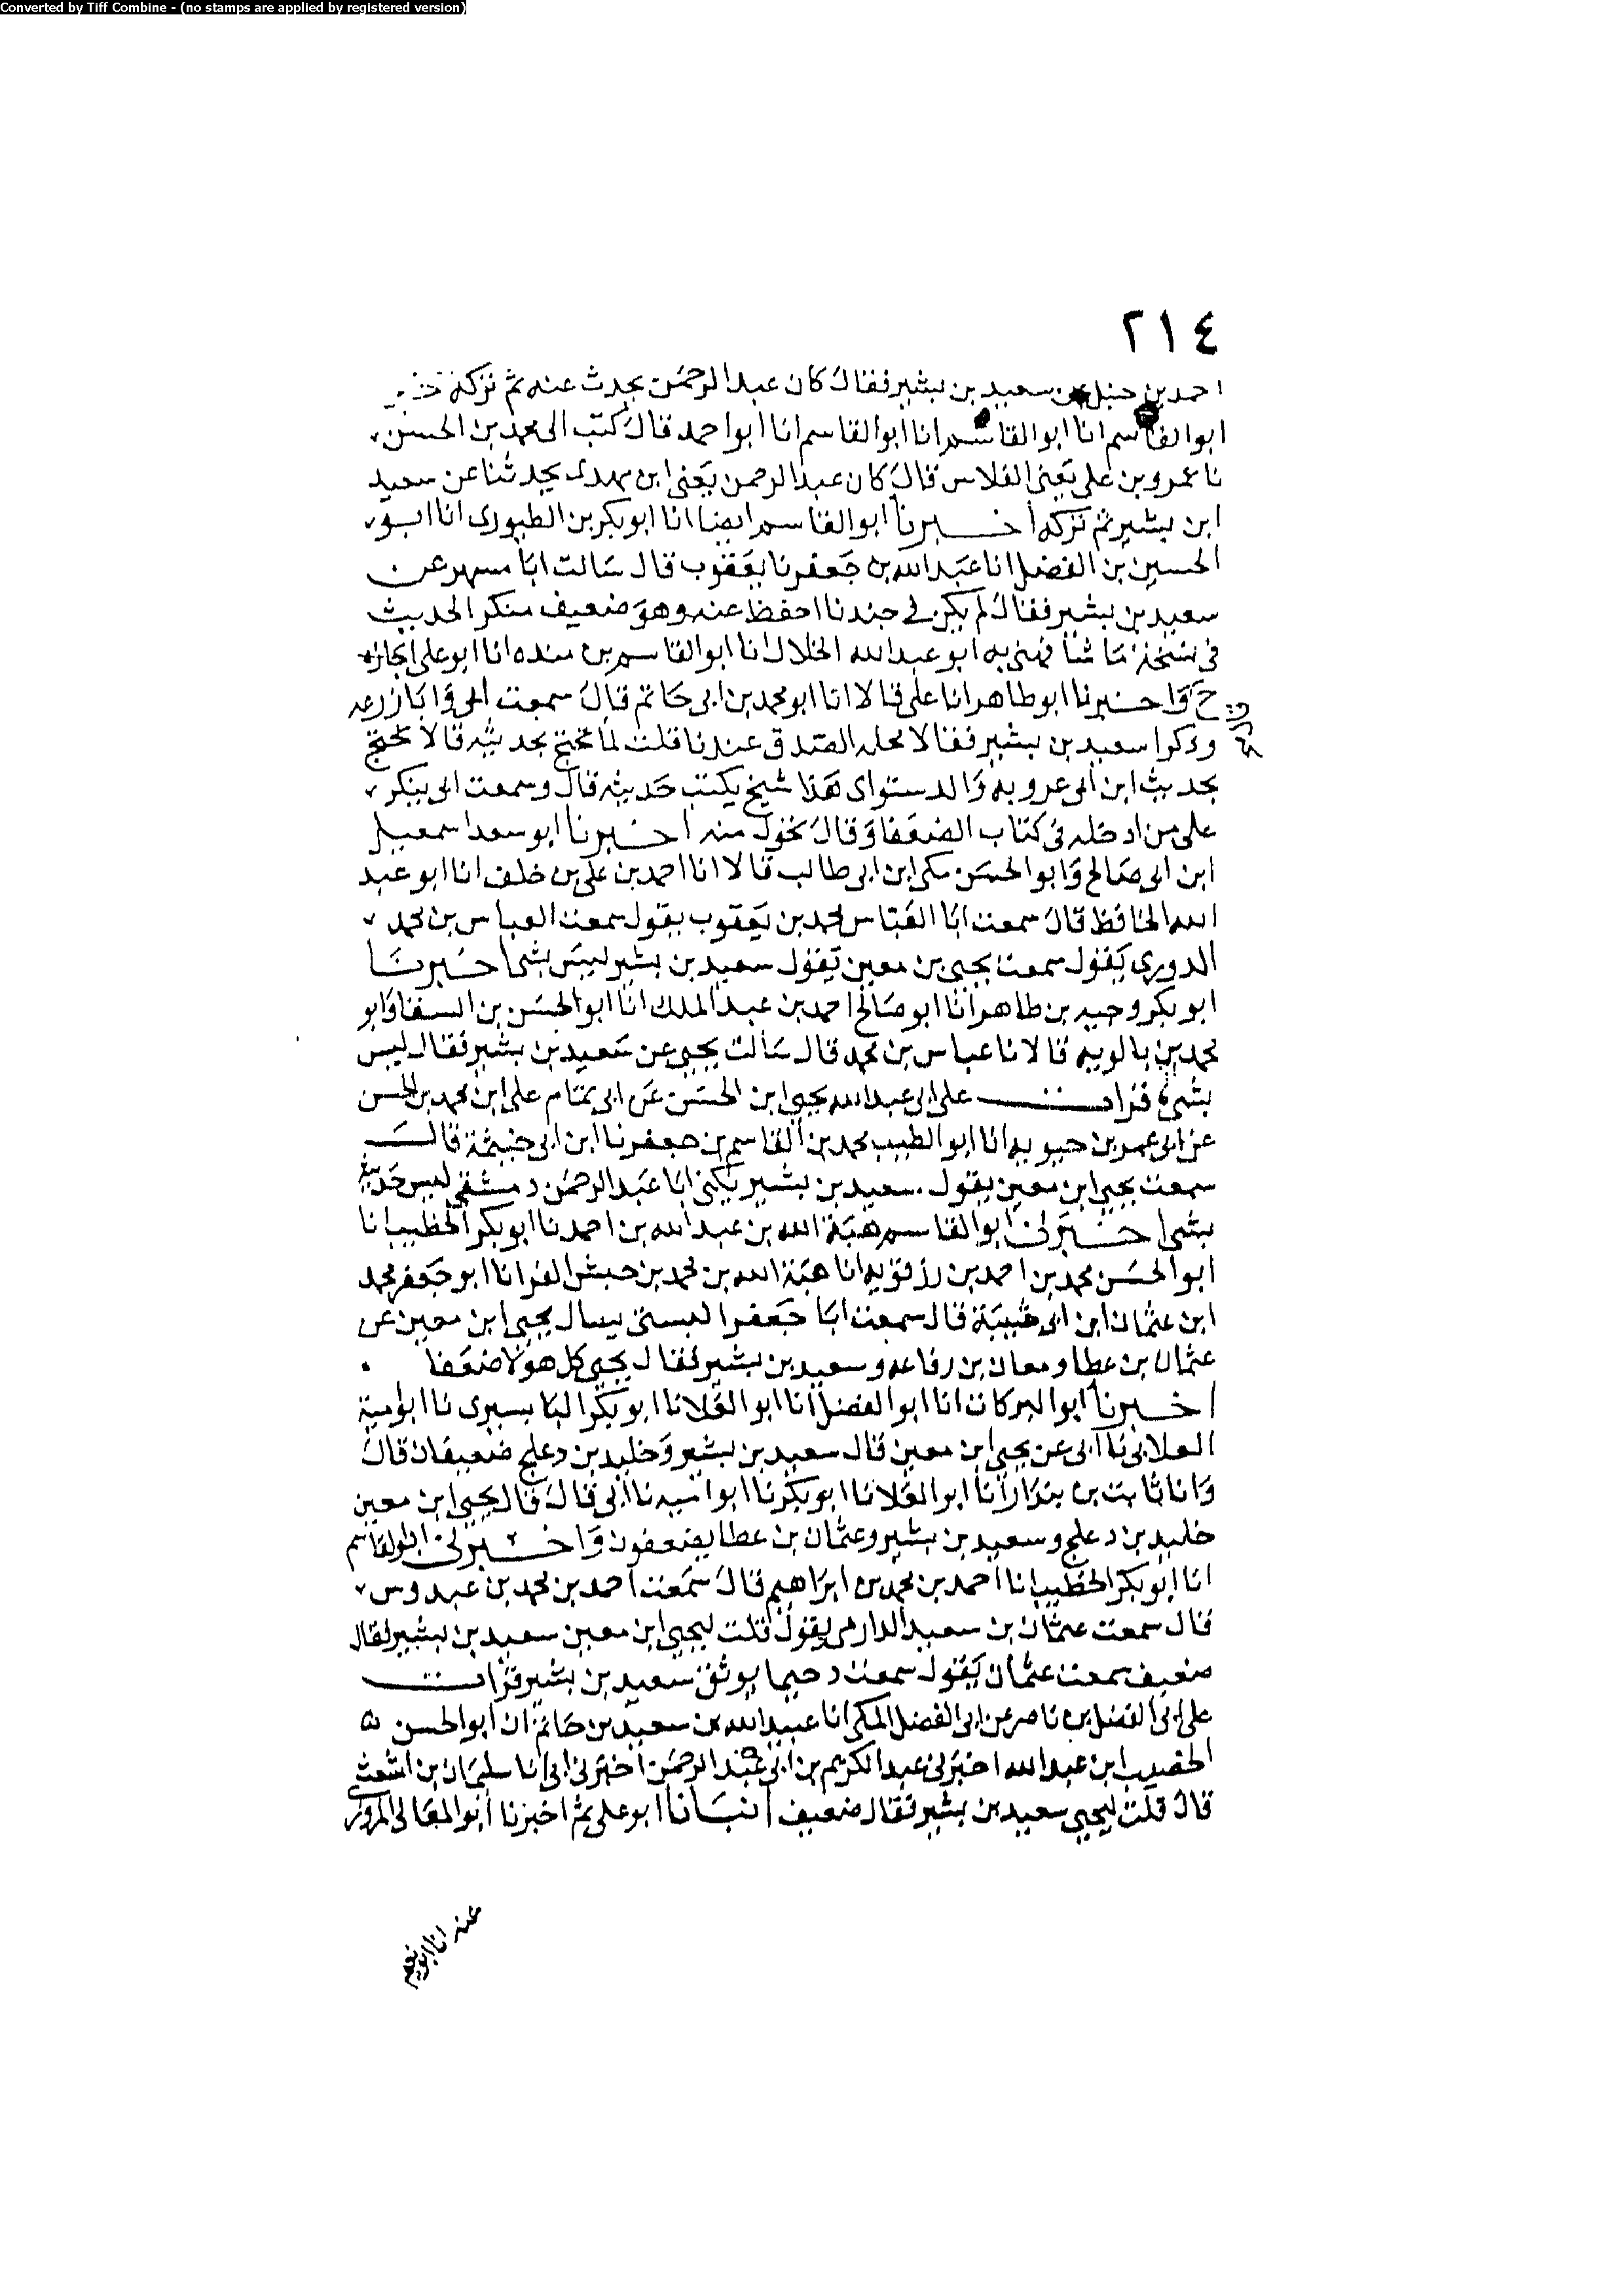 Converted by Tiff Combine - (no stamps are applied by registered version)
٢١٤
احمد بن حنبل عن سعيد بن بشير فقال كان عبد الرحمن يحدث عنه ثم تركه
ابو القاسم انا ابو القاسم انا ابو القاسم انا ابو احمد قال كتب الى محمد بن الحسن
نا عمرو بن على يعنى الفلاس قال كان عبد الرحمن يعنى ابن مهدى يحدثنا عن سعيد
ابن بشير ثم تركه اخبرنا ابو القاسم ايضا انا ابو بكر بن الطبورى انا ابو
الحسين بن الفضل انا عبد الله بن جعفر نا يعقوب قال سالت ابا مسهر عن
سعيد بن بشير فقال لم يكن في جندنا احفظ عنه وهو ضعيف منكر الحديث
فى نسخة ما شا فهنى به ابو عبد الله الخلال انا ابو القاسم بن منده انا ابو على اجازه
ح واخبرنا ابو طاهر انا على قالا انا ابو محمد بن ابى حاتم قال سمعت ابى وابا زرعه
وذكرا سعيد بن بشير فقالا محله الصدق عندنا قلت لهما يحتج بحديثه قالا يحتج
بحديث ابن ابى عروبه والدستواى هذا شيخ يكتب حديثه قال وسمعت ابى ينكر
على من ادخله فى كتاب الضعفا وقال يحول منه اخبرنا ابو سعد اسمعيل
ابن ابى صالح وابو الحسن مكى ابن ابى طالب قالا انا احمد بن على بن خلف انا ابو عبد
الله الحافظ قال سمعت ابا العباس محمد بن يعقوب يقول سمعت العباس بن محمد
الدورى يقول سمعت يحيى بن معين يقول سعيد بن بشير ليس بشى اخبرنا
ابو بكر وجيه بن طاهر انا ابو صالح احمد بن عبد الملك انا ابو الحسن بن السقا وابو
محمد بن بالويه قالا نا عباس بن محمد قال سألت يحيى عن سعيد بن بشير فقال ليس
بشىء قرات على ابى عبد الله يحيى ابن الحسن عن ابى تمام على ابن محمد بن الحسن
عن ابى عمر بن حيويه انا ابو الطيب محمد بن القاسم بن جعفر نا ابن ابى خيثمة قال
سمعت يحيى ابن معين يقول سعيد بن بشير يكنى ابا عبد الرحمن دمشقى ليس حديثه
بشى اخبرنى ابو القاسم هبة الله بن عبد الله بن احمد نا ابو بكر الخطيب انا
ابو الحسن محمد بن احمد بن رزقويه انا هبة الله بن محمد بن حبش الفرا نا ابو جعفر محمد
ابن عثمان ابن ابى شيبة قال سمعت ابا جعفرا لبستى يسال يحيى ابن معين عن
عثمان بن عطا ومعان بن رفاعه وسعيد بن بشير فقال يحيى كل هولا ضعفا
اخبرنا ابو البركات انا ابو الفضل انا ابو العلا نا ابو بكر البابسيرى نا ابو امية
الغلابى نا ابى عن يحيى ابن معين قال سعيد بن بشير وخليد بن دعلج ضعيفان قال
وانا ثابت بن بندار انا ابو العلا نا ابو بكر نا ابو اميه نا ابى قال قال يحيى ابن معين
خليد بن دعلج وسعيد بن بشير وعثمان بن عطا يضعفون واخبرنى ابو القاسم
انا ابو بكر الخطيب انا احمد بن محمد بن ابراهيم قال سمعت احمد بن محمد بن عبدوس
قال سمعت عثمان بن سعيد الدارمى يقول قلت ليحيى ابن معين سعيد بن بشير فقال
ضعيف سمعت عثمان يقول سمعت دحيما يوثق سعيد بن بشير قرات
على ابى الفضل بن ناصر عن ابى الفضل المكى انا عبيد الله بن سعيد بن حاتم ان ابو الحسن
الخصيب ابن عبد الله اخبرنى عبد الكريم بن ابى عبد الرحمن اخبرنى ابى انا سليمان بن اشعث
قال قلت ليحيى سعيد بن بشير فقال ضعيف انبانا ابو على ثم اخبرنا ابو المعالى المروزى
عنه انا ابو نعيم